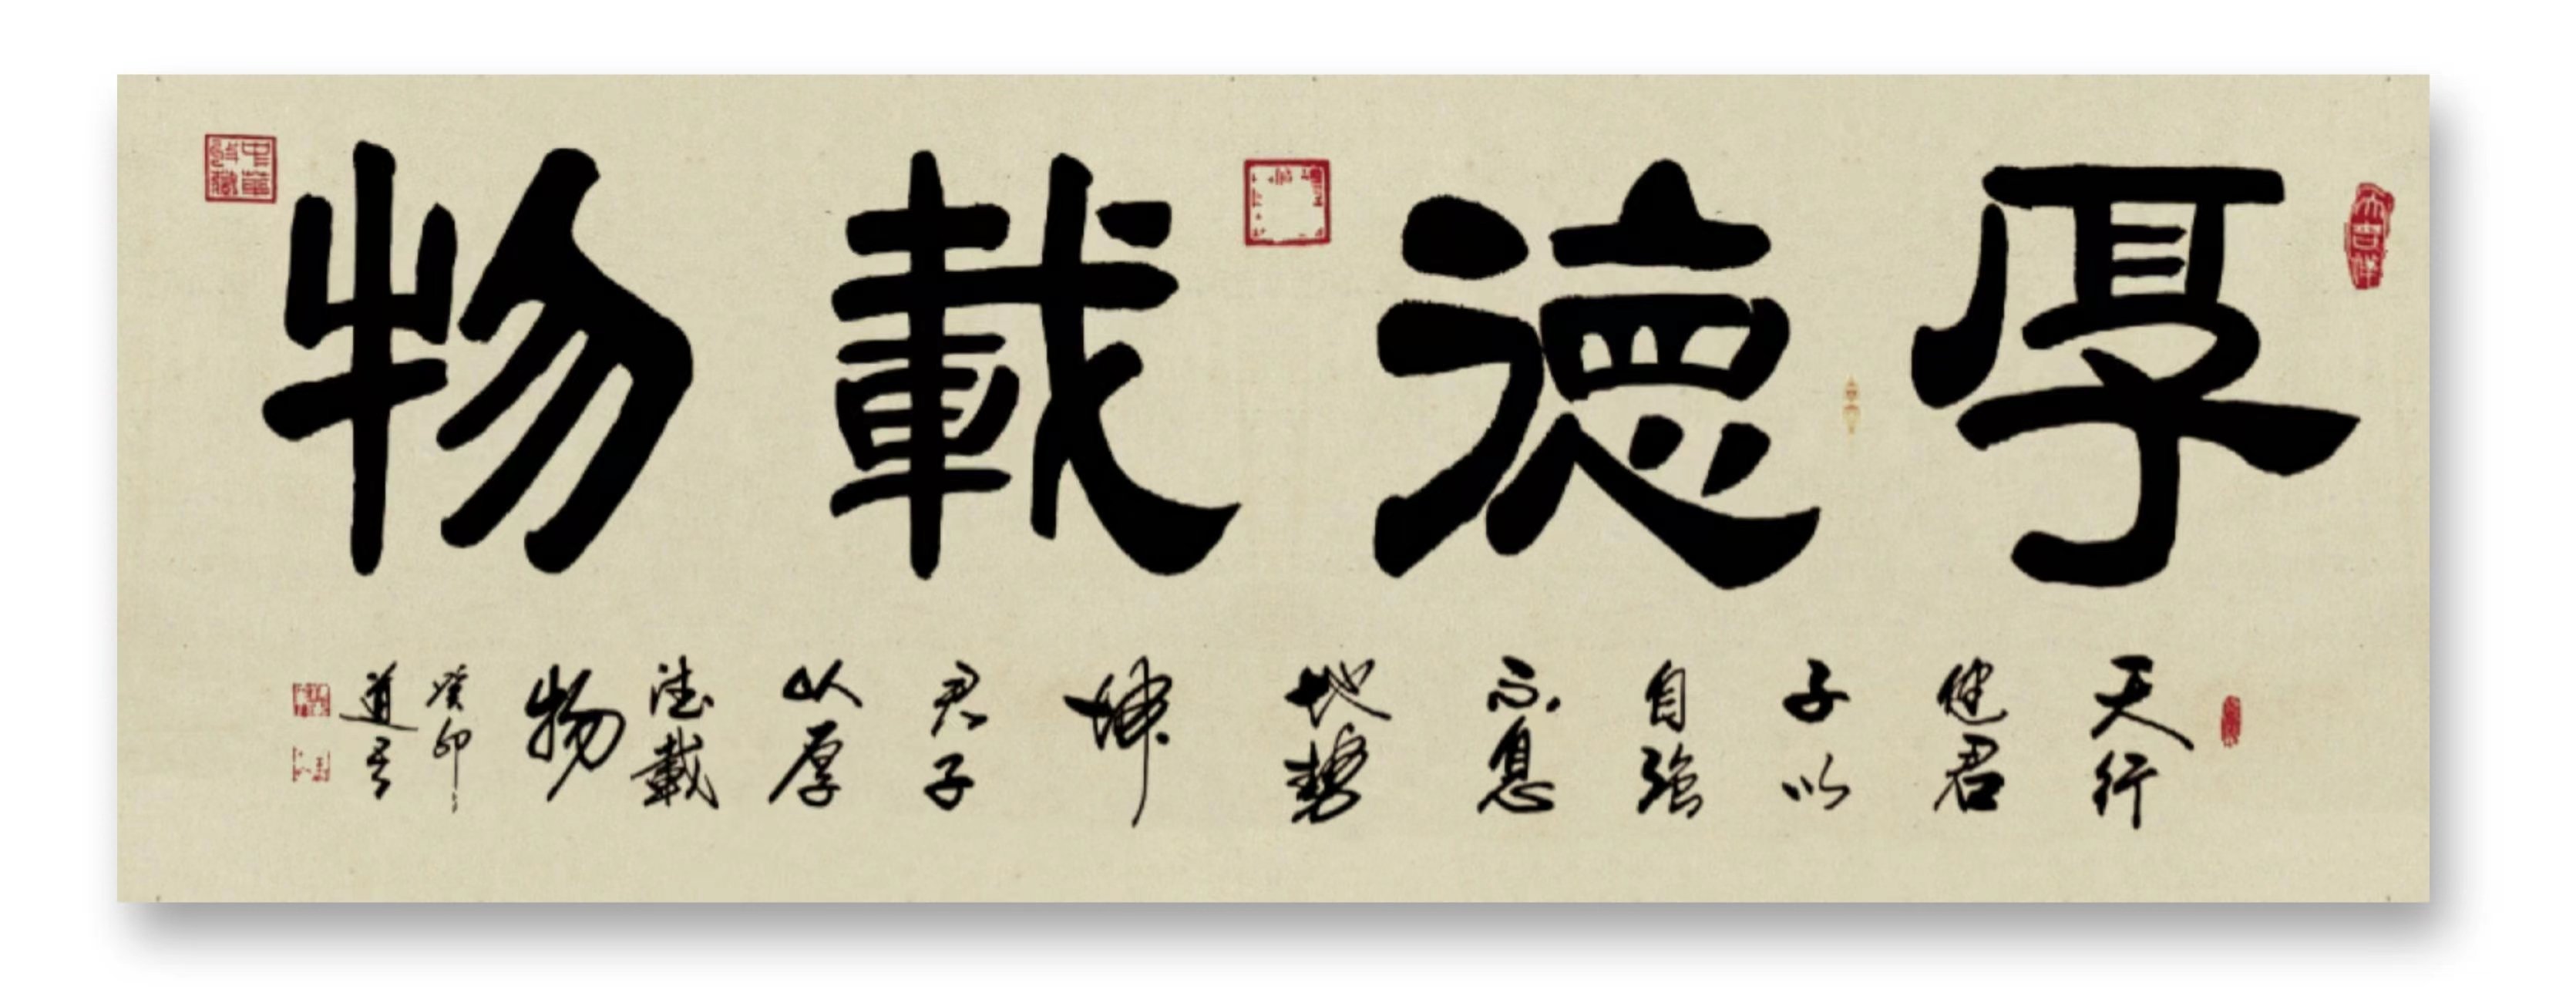 厚德載物
天行
健君
子以
自強
不息
地勢
坤
君子
以厚
德載
物
癸卯
道君
大吉祥